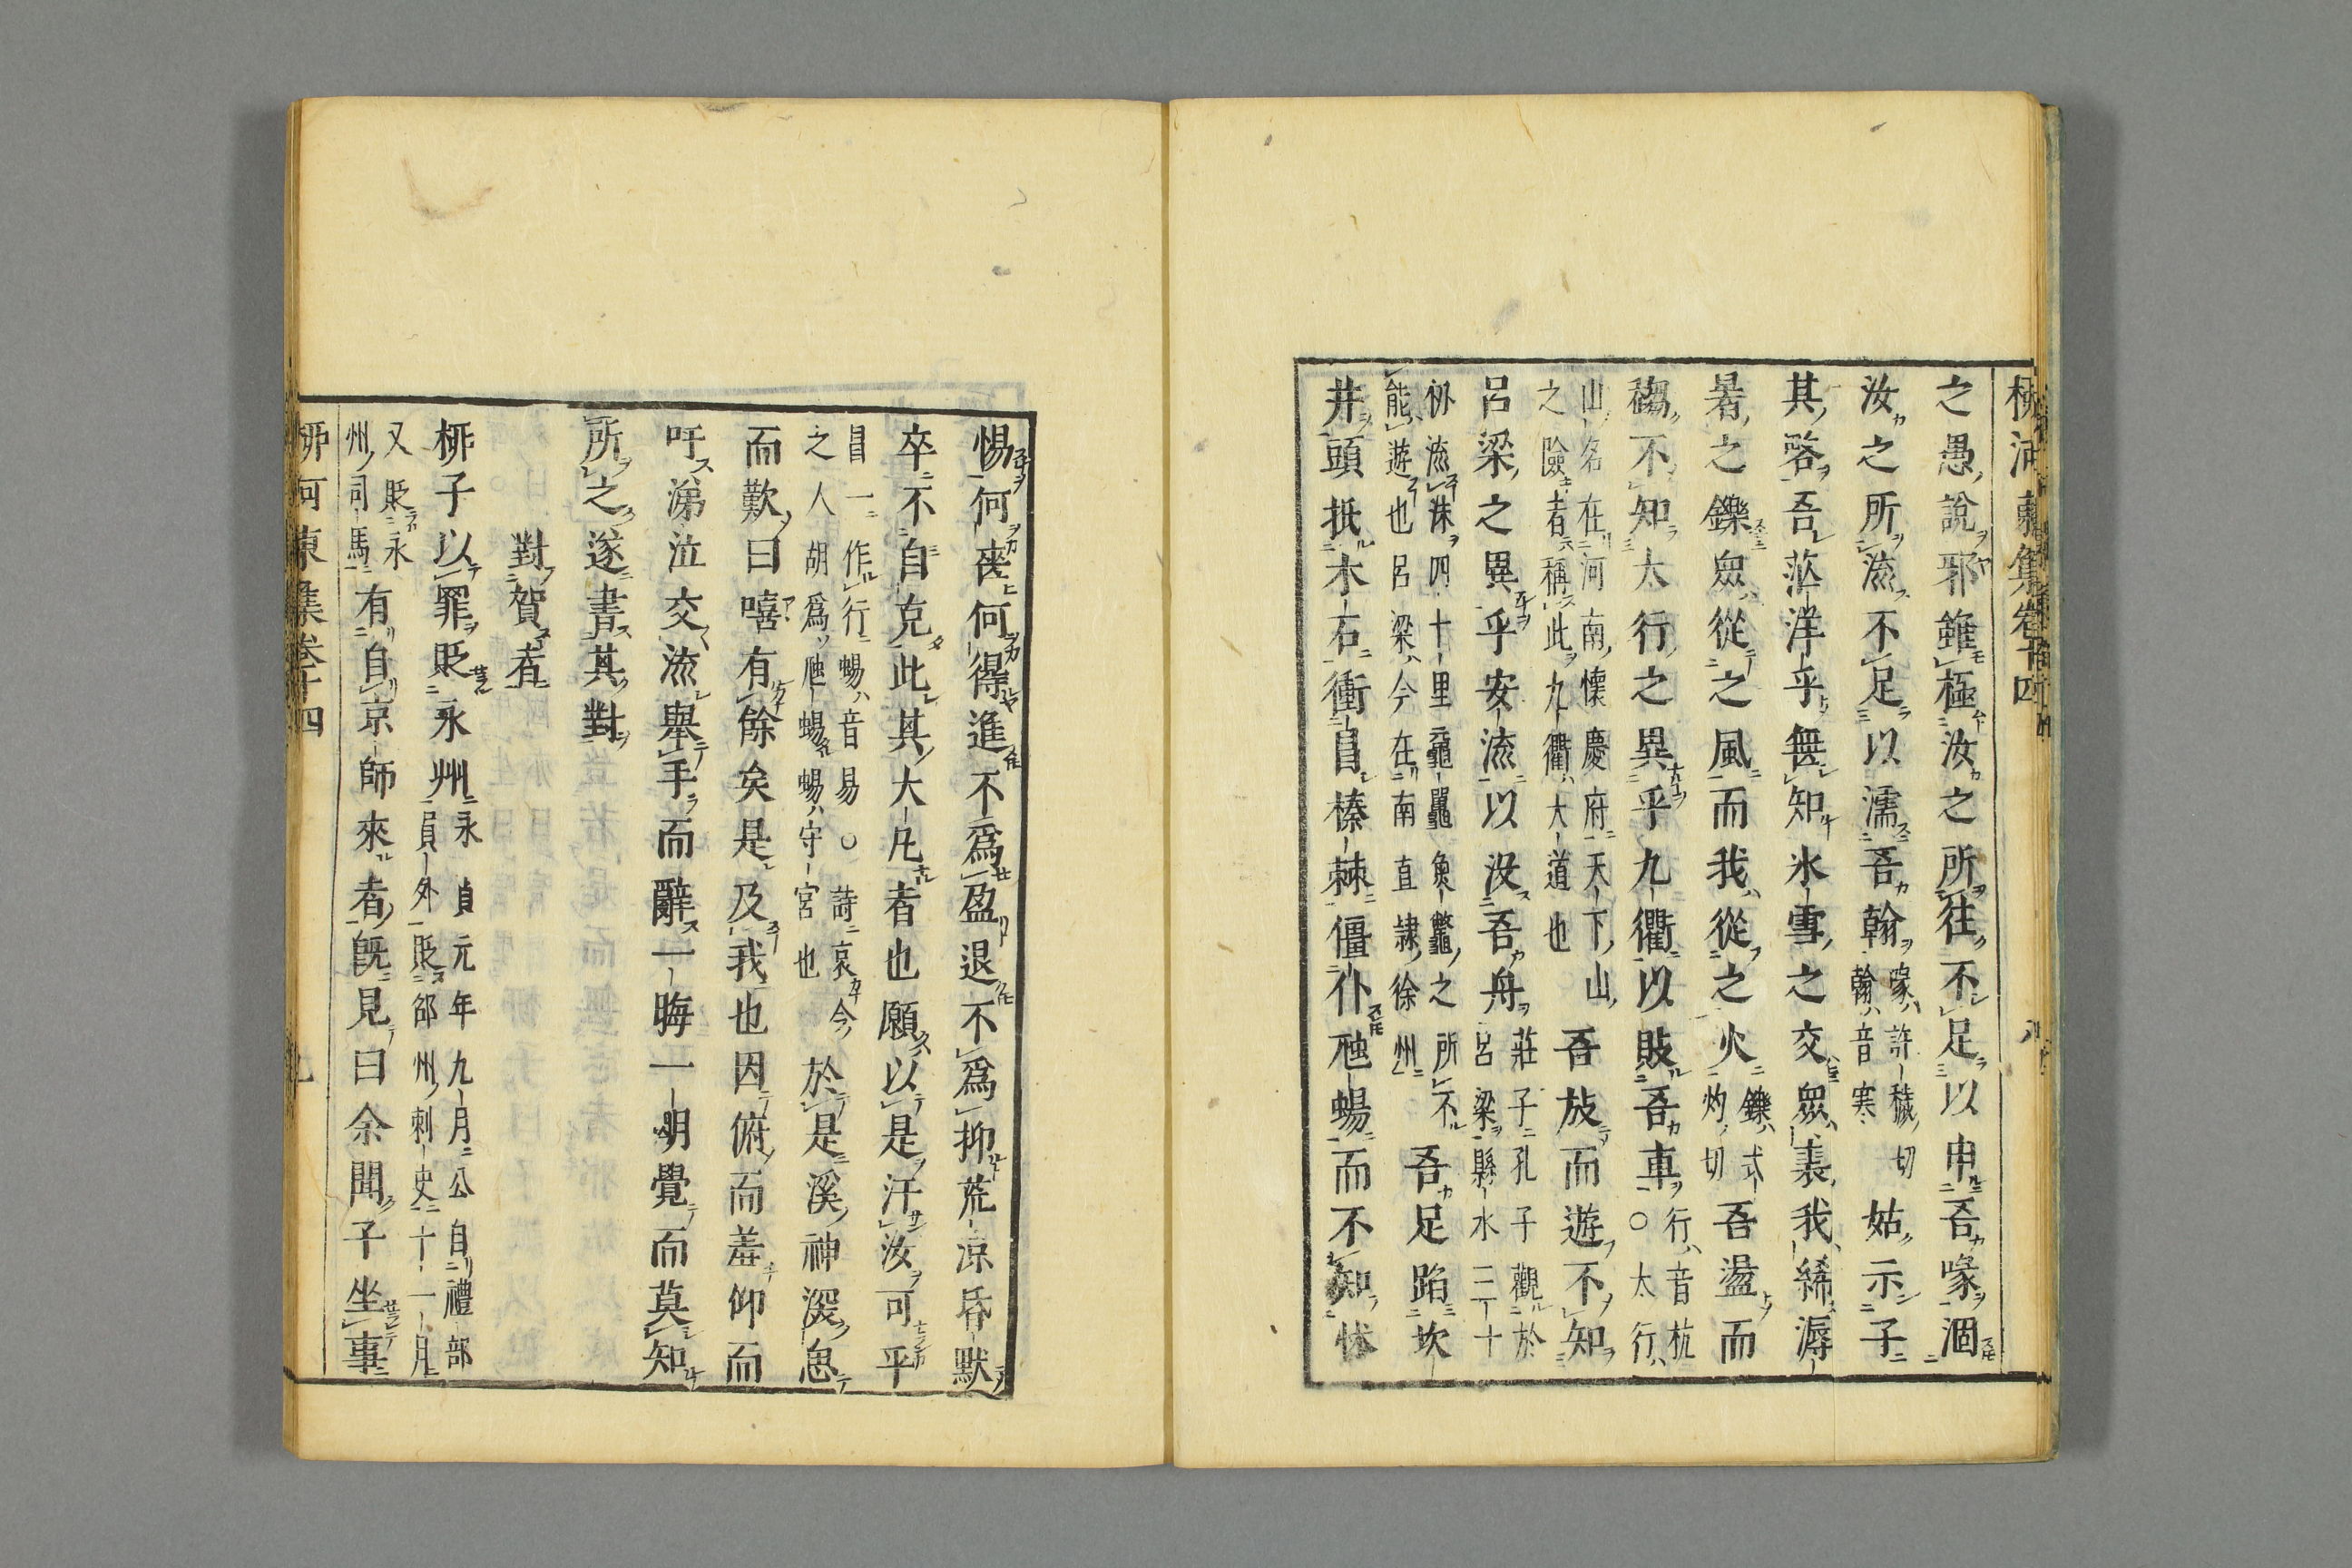 柳河東集卷十四 八
之愚說邪雖極汝之所往不足以申吾喙涸
汝之所流不足以濡吾翰喙許穢切翰音寒姑示子
其畧吾茫洋乎無知氷雪之交衆裘我絺溽
暑之鑠衆從之風而我從之火鑠式灼切吾盪而
𥾝不知太行之異乎九衢以敗吾車行音杭○太行
山名在河南懷慶府天下山之險者稱此九衢大道也吾放而遊不知
呂梁之異乎安流以没吾舟莊子孔子觀於呂梁縣水三十
仞流沫四十里黿鼉魚鼈之所不能遊也呂梁今在南直隷徐州吾足蹈坎
井頭抵木石衝冒榛棘僵仆虺蜴而不知怵
惕何喪何得進不爲盈退不爲抑荒凉昏默
卒不自克此其大凡者也願以是汙汝可乎
冒一作行蜴音易○詩哀今之人胡爲虺蜴蜴守宮也於是溪神深思
而歎曰嘻有餘矣是及我也因俯而羞仰而
吁涕泣交流舉手而辭一晦一明覺而莫知
所之遂書其對
對賀者
柳子以罪貶永州永貞元年九月公自禮部員外貶邵州刺史十一月
又貶永州司馬有自京師來者旣見曰余聞子坐事
柳河東集卷十四